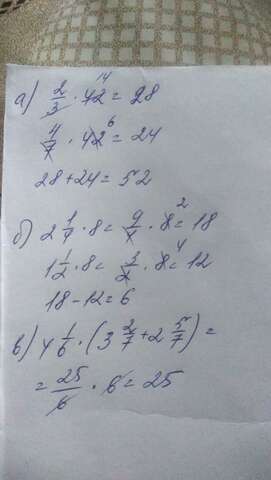 а) 2/3 · 42 14 = 28
4/7 · 42 6 = 24
28+24=52
б) 2 1/4 · 8 = 9/4 · 8 2 = 18
1 1/2 · 8 = 3/2 · 8 4 = 12
18-12=6
в) 4 1/6 · (3 2/7 + 2 5/7) =
= 25/6 · 6 = 25